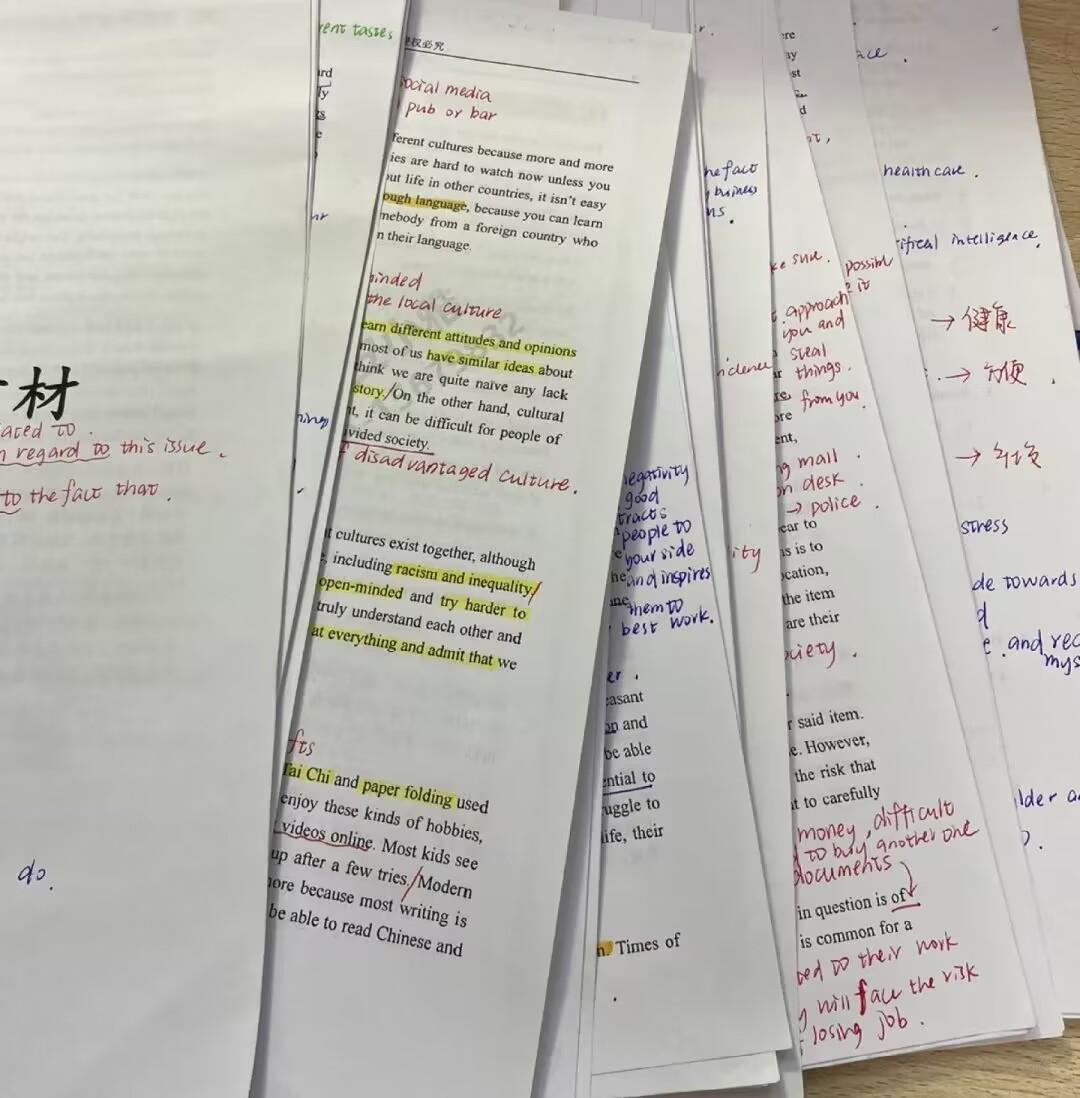 材
to
regard to this issue.
to the fact that.
do.
tastes
权必究
social media
pub or bar
ferent cultures because more and more
ies are hard to watch now unless you
out life in other countries, it isn't easy
ough language, because you can learn
mebody from a foreign country who
n their language.
minded
the local culture
earn different attitudes and opinions
most of us have similar ideas about
think we are quite naïve any lack
story./On the other hand, cultural
it, it can be difficult for people of
ivided society.
f disadvantaged culture.
t cultures exist together, although
, including racism and inequality./
open-minded and try harder to
truly understand each other and
at everything and admit that we
fts
Tai Chi and paper folding used
enjoy these kinds of hobbies,
videos online. Most kids see
up after a few tries./Modern
more because most writing is
be able to read Chinese and
he fact
business
ns.
negativity
good
tracts
people to
your side
and inspires
them to
best work.
er.
easant
on and
be able
ential to
uggle to
life, their
n. Times of
ke sure.
approach
you and
steal
things.
from you.
ore
ent,
ng mail.
on desk.
→ police.
ear to
is is to
ocation,
the item
are their
ociety.
ity
r said item.
e. However,
the risk that
t to carefully
money, difficult
to buy another one
documents
in question is of
is common for a
ted to their work
will face the risk
losing job.
possible
it
health care.
tifical intelligence.
→ 健康
→ 方便.
stress
de towards
and rec
mys
lder a